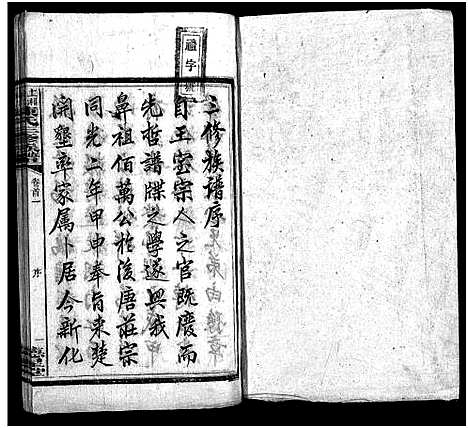 禮字號
三修族譜序
自王室宗人之官既廢而
先哲譜牒之學遂興我
鼻祖佰萬公於後唐莊宗
同光二年甲申奉旨來楚
開墾率家属卜居今新化
卷首一
序
一